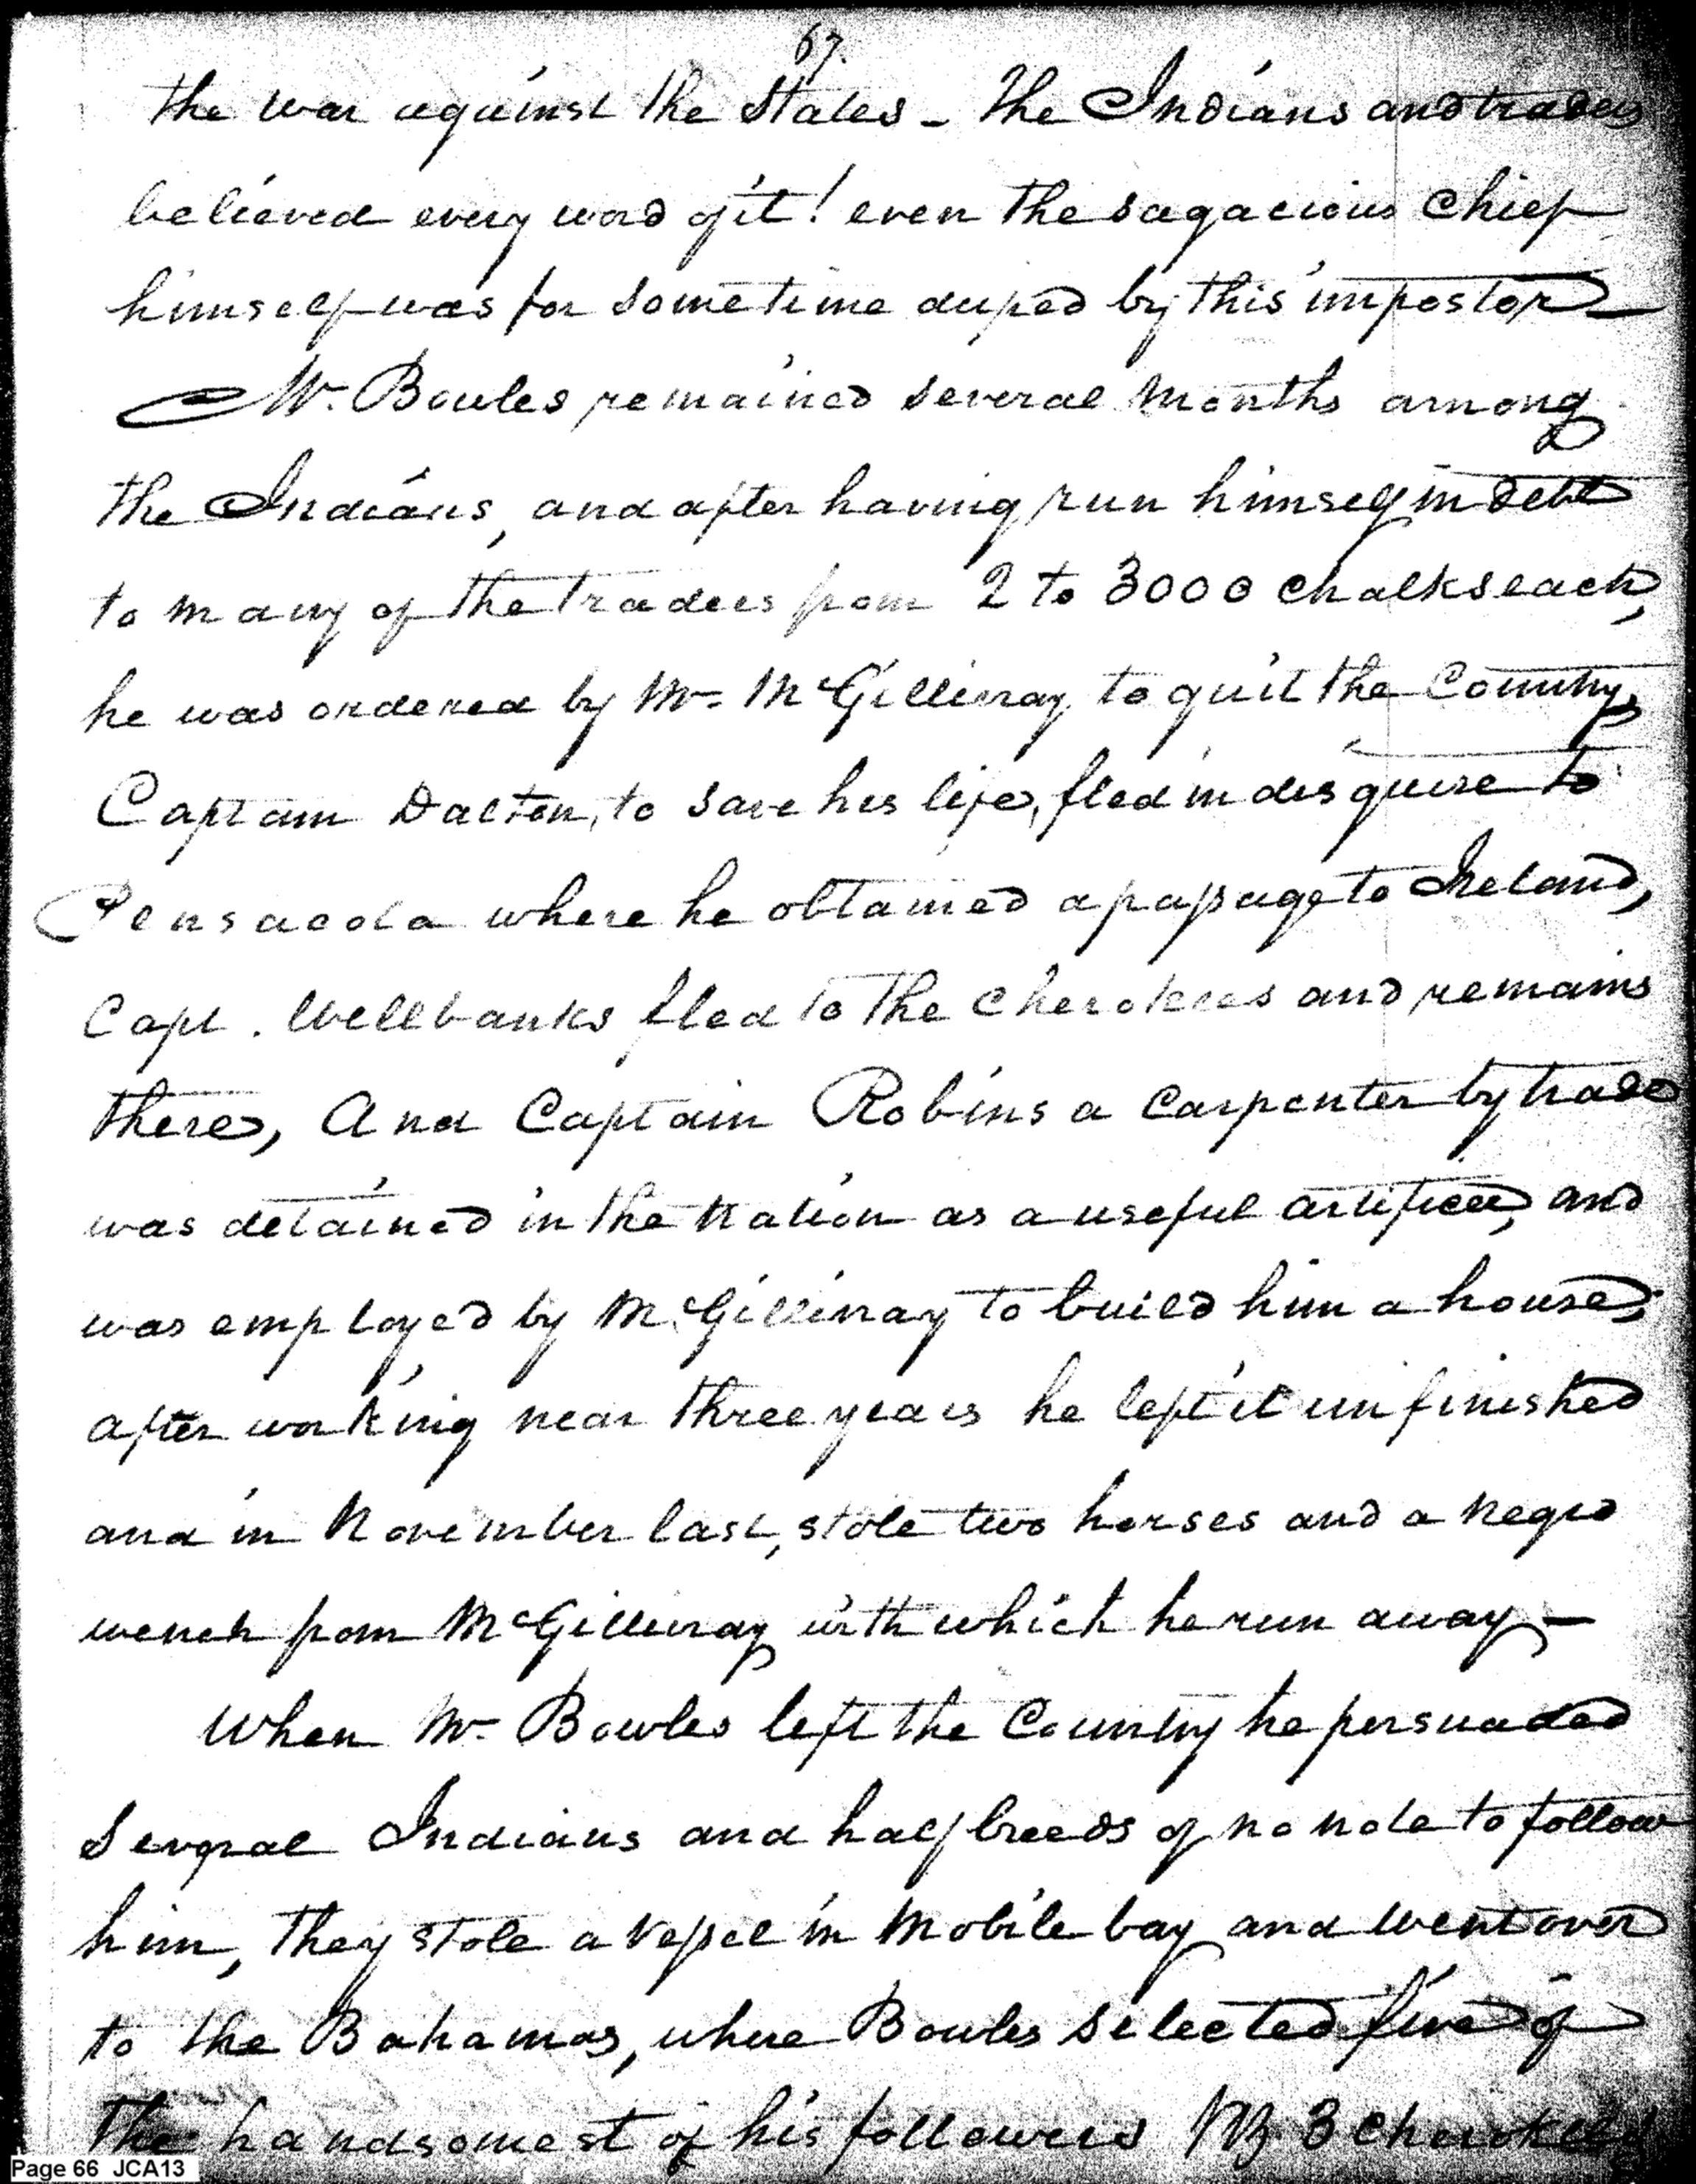 67.
the war against the States – The Indians and traders
believed every word of it! even the sagacious Chief
himself was for sometime duped by this impostor –
Mr. Bowles remained several months among
the Indians, and after having run himself in debt
to many of the traders from 2 to 3000 chalks each,
he was ordered by Mr. McGillivray to quit the Country,
Captain Dalton, to save his life, fled in disguise to
Pensacola where he obtained a passage to Ireland,
Capt. Wellbanks fled to the Cherokees and remains
there, And Captain Robins a Carpenter by trade
was detained in the Nation as a useful artificer, and
was employed by McGillivray to build him a house;
after working near three years he left it unfinished
and in November last, stole two horses and a negro
wench from McGillivray with which he run away –
When Mr. Bowles left the Country he persuaded
several Indians and half breeds of no note to follow
him, they stole a vessel in Mobile bay and went over
to the Bahamas, where Bowles selected five of
the handsomest of his followers Viz 3 Cherokees
Page 66 JCA13